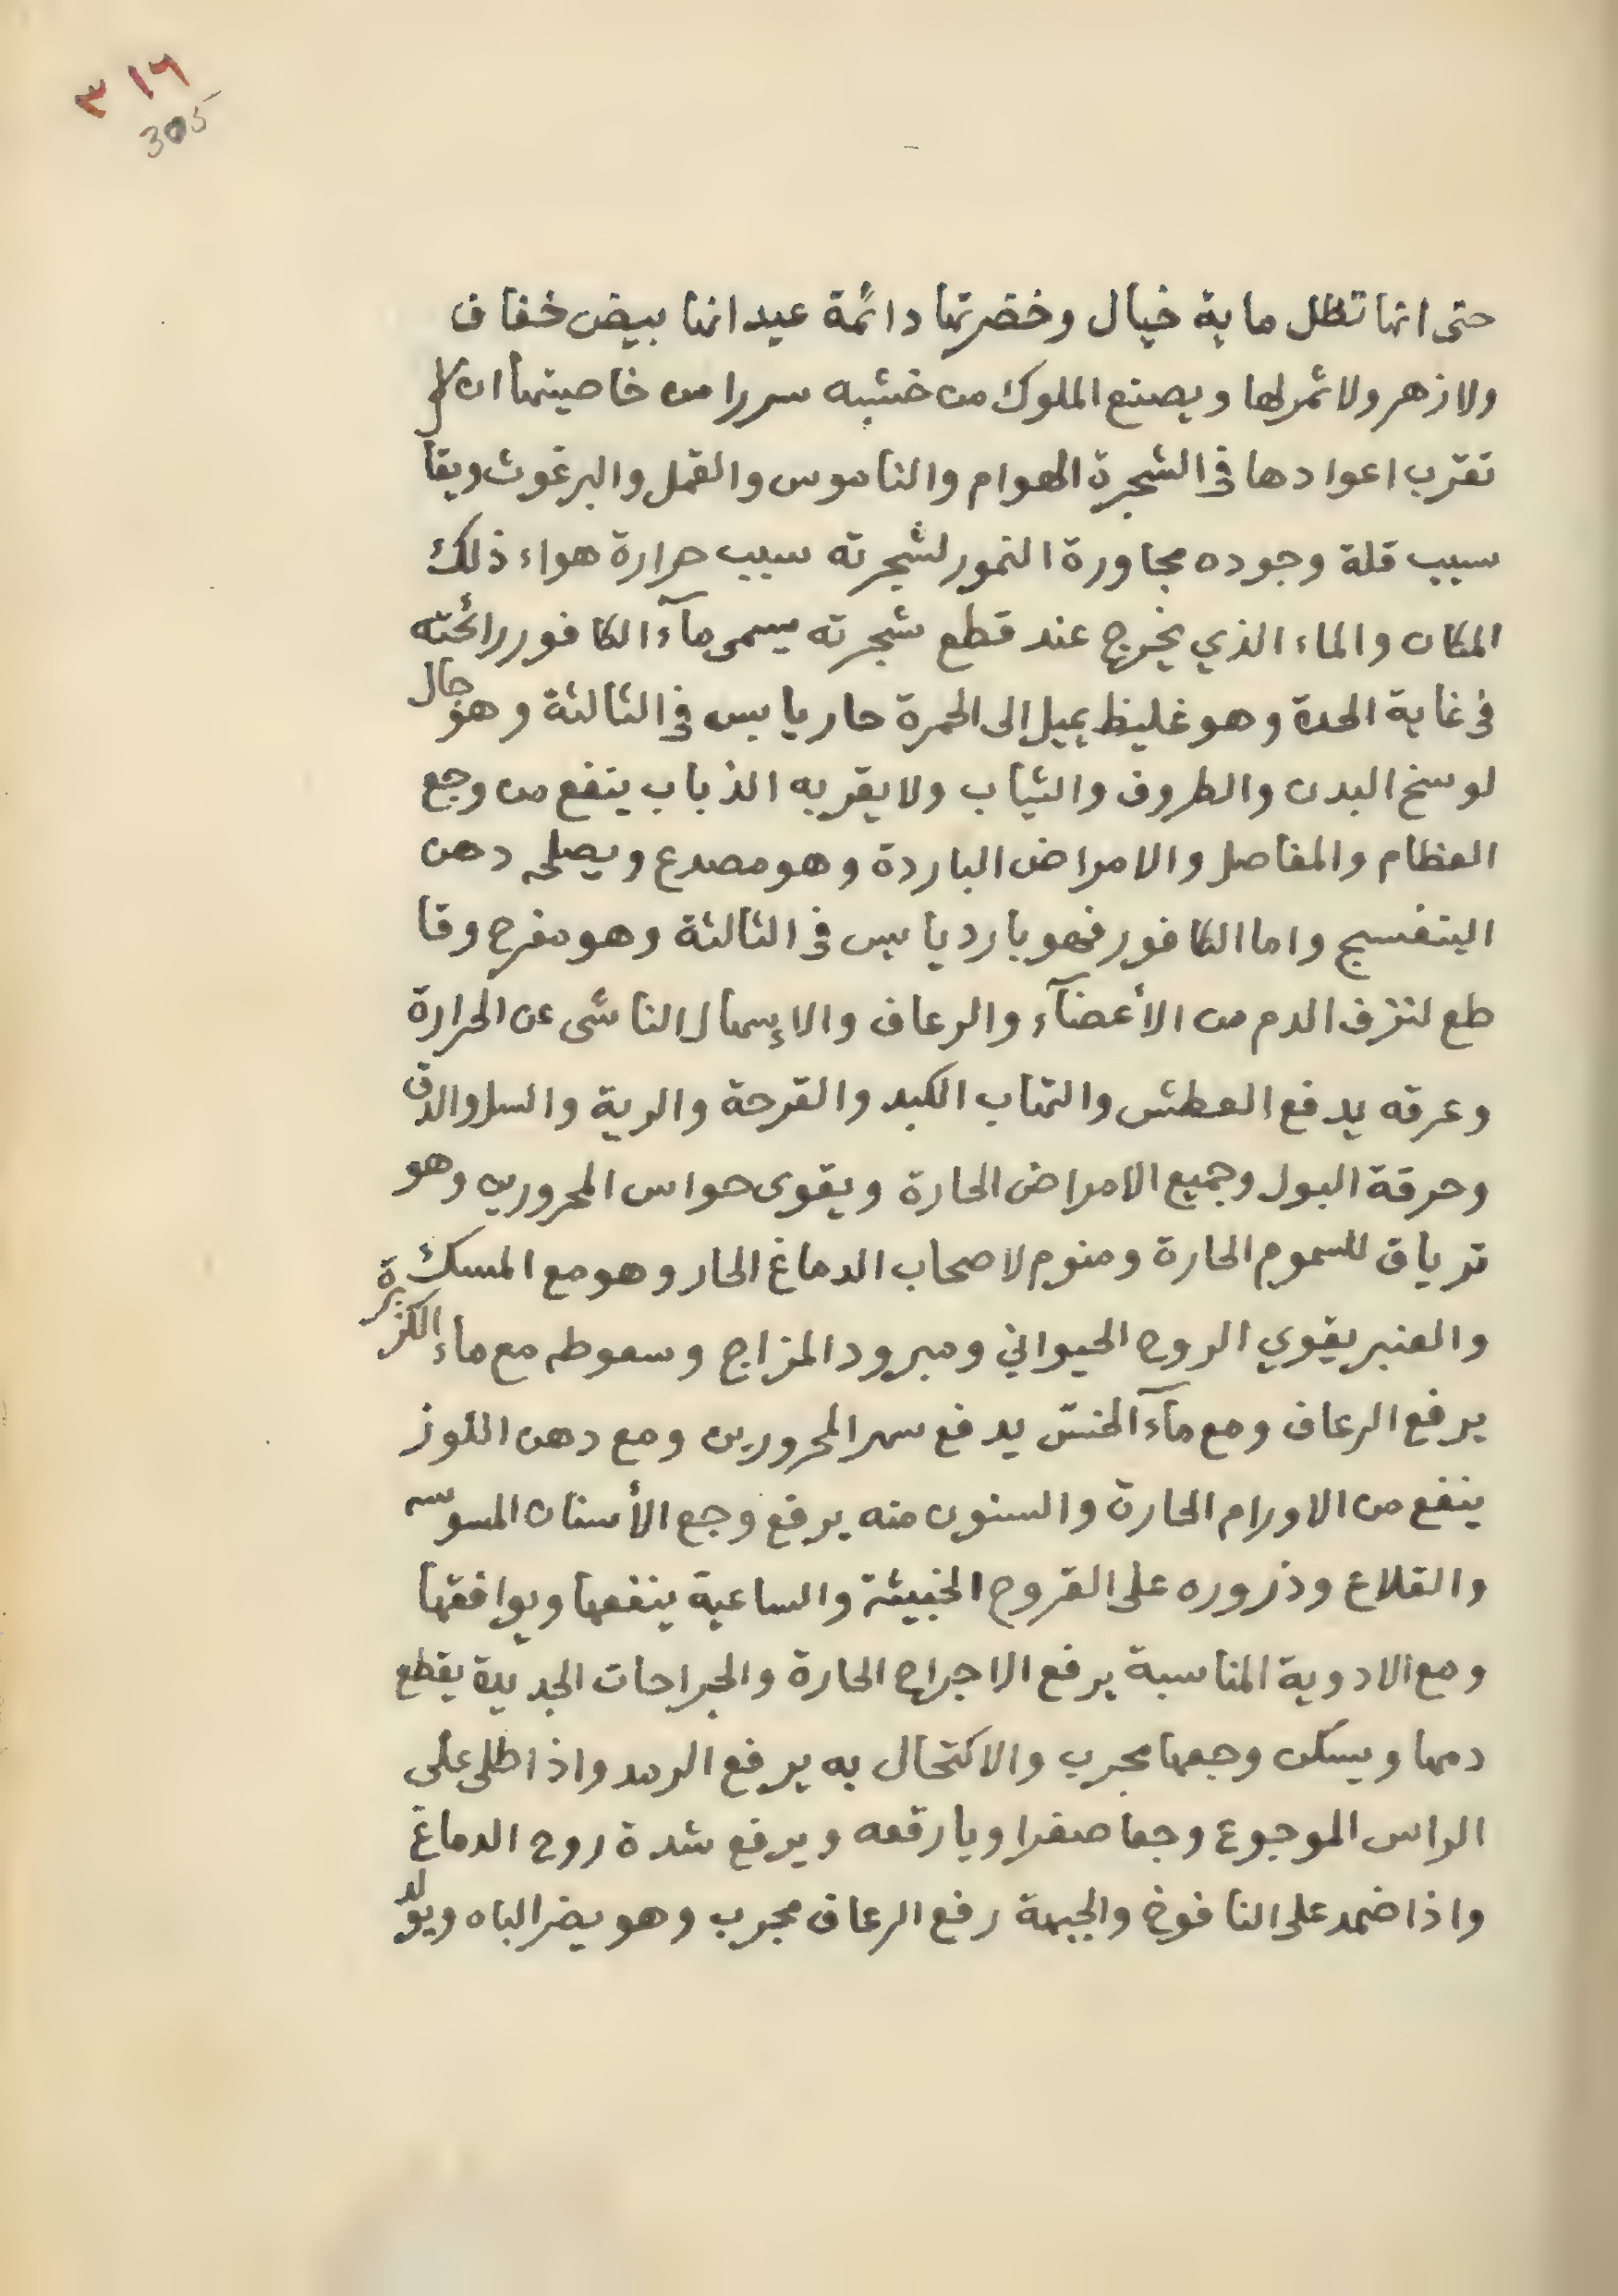 ٣١٦
305
حتى انها تظل ماية خيال وخضرتها دائمة عيدانها بيض خفاف
ولا زهر ولا ثمر لها ويصنع الملوك من خشبه سررا من خاصيتها ان لا
تقرب اعوادها في الشجرة الهوام والناموس والقمل والبرغوث ويقا
سبب قلة وجوده مجاورة النمور لشجرته سبب حرارة هواء ذلك
المكان والماء الذي يخرج عند قطع شجرته يسمى مآء الكافور رائحته
في غاية الحدة وهو غليظ يميل إلى الحمرة حار يابس في الثالثة وهو جال
لوسخ البدن والظروف والثياب ولا يقربه الذباب ينفع من وجع
العظام والمفاصل والامراض الباردة وهو مصدع ويصلحه دهن
البنفسج واما الكافور فهو بارد يابس في الثالثة وهو مفرح وقا
طع لنزف الدم من الأعضآء والرعاف والإسهال الناشى عن الحرارة
وعرقه يدفع العطش والتهاب الكبد والقرحة والرية والسل والدق
وحرقة البول وجميع الامراض الحارة ويقوى حواس المحرورين وهو
ترياق للسموم الحارة ومنوم لاصحاب الدماغ الحار وهو مع المسك
والعنبر يقوي الروح الحيواني ومبرود المزاج وسعوطه مع ماء الكزبرة
يرفع الرعاف ومع مآء الخسّ يدفع سهر المحرورين ومع دهن اللوز
ينفع من الاورام الحارة والسنون منه يرفع وجع الأسنان المسوسه
والقلاع وذروره على القروح الخبيثة والساعية ينفعها ويوافقها
ومع الادوية المناسبة يرفع الاجراح الحارة والجراحات الجديدة يقطع
دمها ويسكن وجعها مجرب والاكتحال به يرفع الرمد واذا طلى على
الراس الموجوع وجعا صفراويا رقعه ويرفع شدة روح الدماغ
واذا ضمد على النافوخ والجبهة رفع الرعاف مجرب وهو يضر الباه ويولد